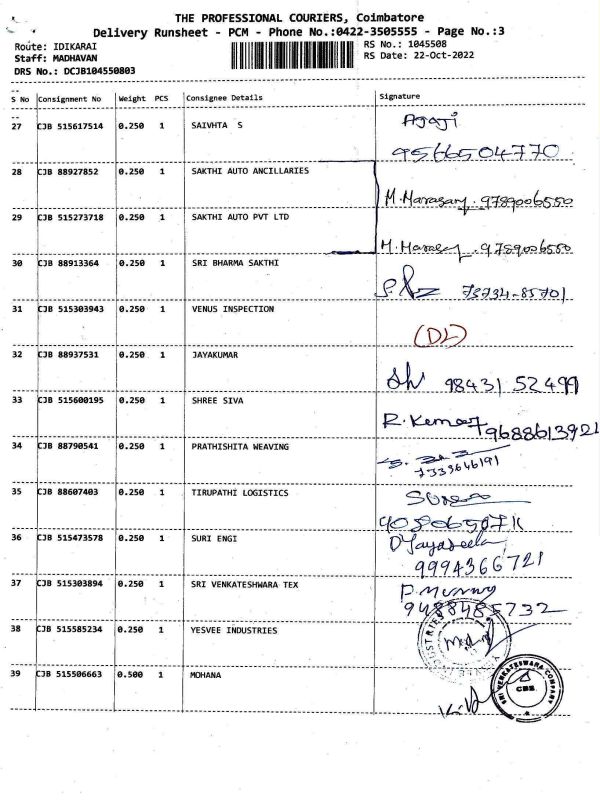 THE PROFESSIONAL COURIERS, Coimbatore
Delivery Runsheet - PCM - Phone No.:0422-3505555 - Page No.:3
Route: IDIKARAI RS No.: 1045508
Staff: MADHAVAN RS Date: 22-Oct-2022
DRS No.: DCJB104550803
S No Consignment No Weight PCS Consignee Details Signature
27 CJB 515617514 0.250 1 SAIVHTA S
9566504770
28 CJB 88927852 0.250 1 SAKTHI AUTO ANCILLARIES
9789006550
29 CJB 515273718 0.250 1 SAKTHI AUTO PVT LTD
9789006550
30 CJB 88913364 0.250 1 SRI BHARMA SAKTHI
73734-85701
31 CJB 515303943 0.250 1 VENUS INSPECTION
(DL)
32 CJB 88937531 0.250 1 JAYAKUMAR
98431 52499
33 CJB 515600195 0.250 1 SHREE SIVA
R. Kumar 9688613921
34 CJB 88790541 0.250 1 PRATHISHITA WEAVING
7339646191
35 CJB 88607403 0.250 1 TIRUPATHI LOGISTICS
36 CJB 515473578 0.250 1 SURI ENGI
9994366721
37 CJB 515303894 0.250 1 SRI VENKATESHWARA TEX
9488485732
38 CJB 515585234 0.250 1 YESVEE INDUSTRIES
39 CJB 515506663 0.500 1 MOHANA
SRI VENKATESWARA COMPANY
CBE